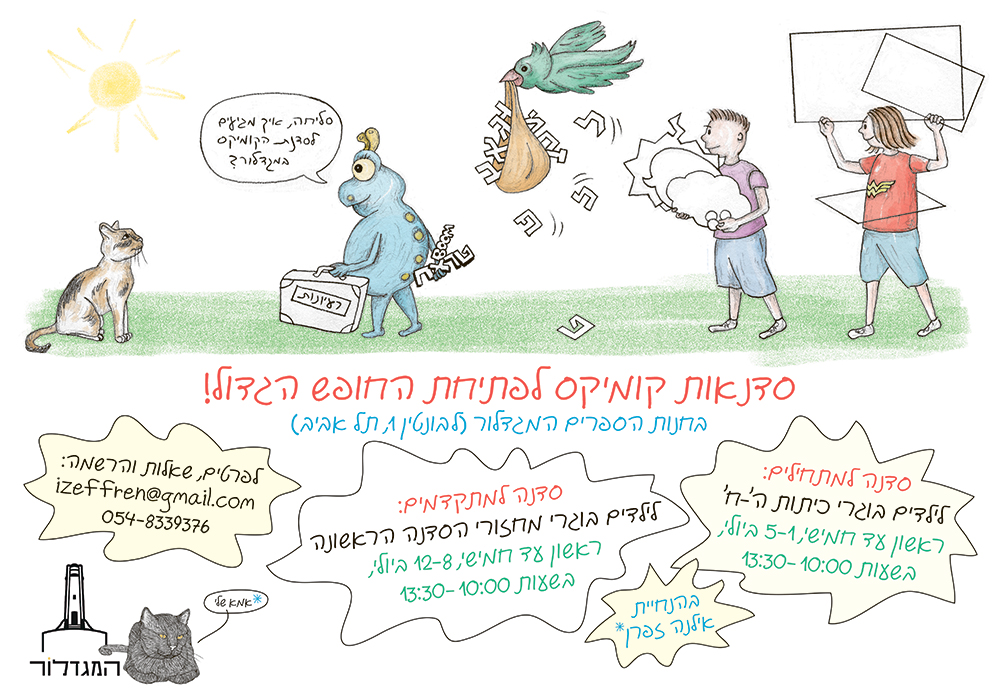 סליחה, איך מגיעים
לסדנת הקומיקס
במגדלור?
רעיונות
BOOM
טראח
ת
סדנאות קומיקס לפתיחת החופש הגדול!
בחנות הספרים המגדלור (לבונטין 1, תל אביב)
סדנה למתחילים:
לילדים בוגרי כיתות ה'-ח'
ראשון עד חמישי, 5-1 ביולי,
בשעות 13:30-10:00
סדנה למתקדמים:
לילדים בוגרי מחזורי הסדנה הראשונה
ראשון עד חמישי, 12-8 ביולי,
בשעות 13:30-10:00
לפרטים, שאלות והרשמה:
izeffren@gmail.com
054-8339376
בהנחיית
אילנה זפרן*
*אמא שלי
המגדלור